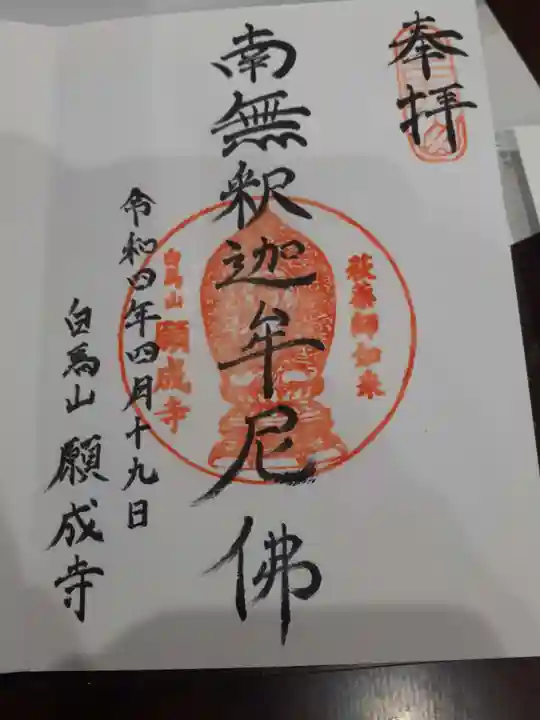 奉拝
南無釈迦牟尼佛
萩薬師如来
白馬山
願成寺
令和四年四月十九日
白馬山 願成寺